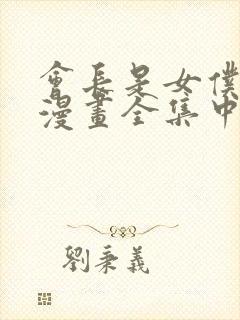 會長是女僕
漫畫全集中
劉秉義